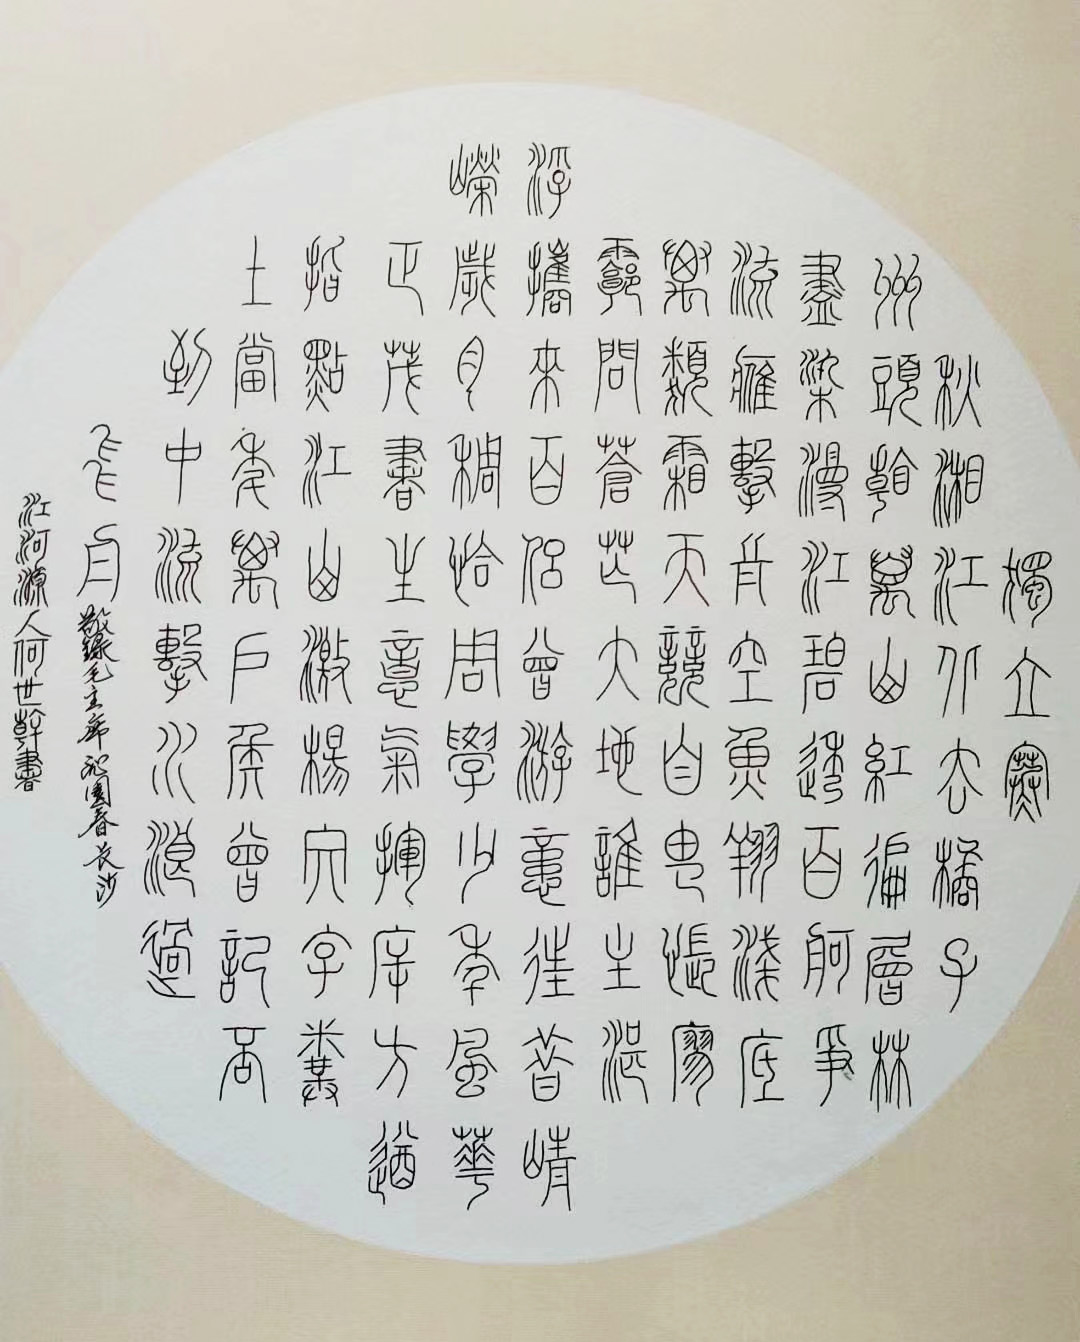 獨立寒
秋湘江北去橘子
州頭看萬山紅徧層林
盡染漫江碧透百舸爭
流雁擊長空魚翔淺底
萬類霜天競自由悵廖
廓問蒼茫大地誰主沉
浮攜來百侣曾游憶往昔崢
嶸歲月稠恰同學少年風華
正茂書生意氣揮斥方遒
指點江山激揚文字糞
土當年萬戶侯曾記否
到中流擊水浪遏
飛舟敬錄毛主席沁園春長沙
江河源人何世幹書